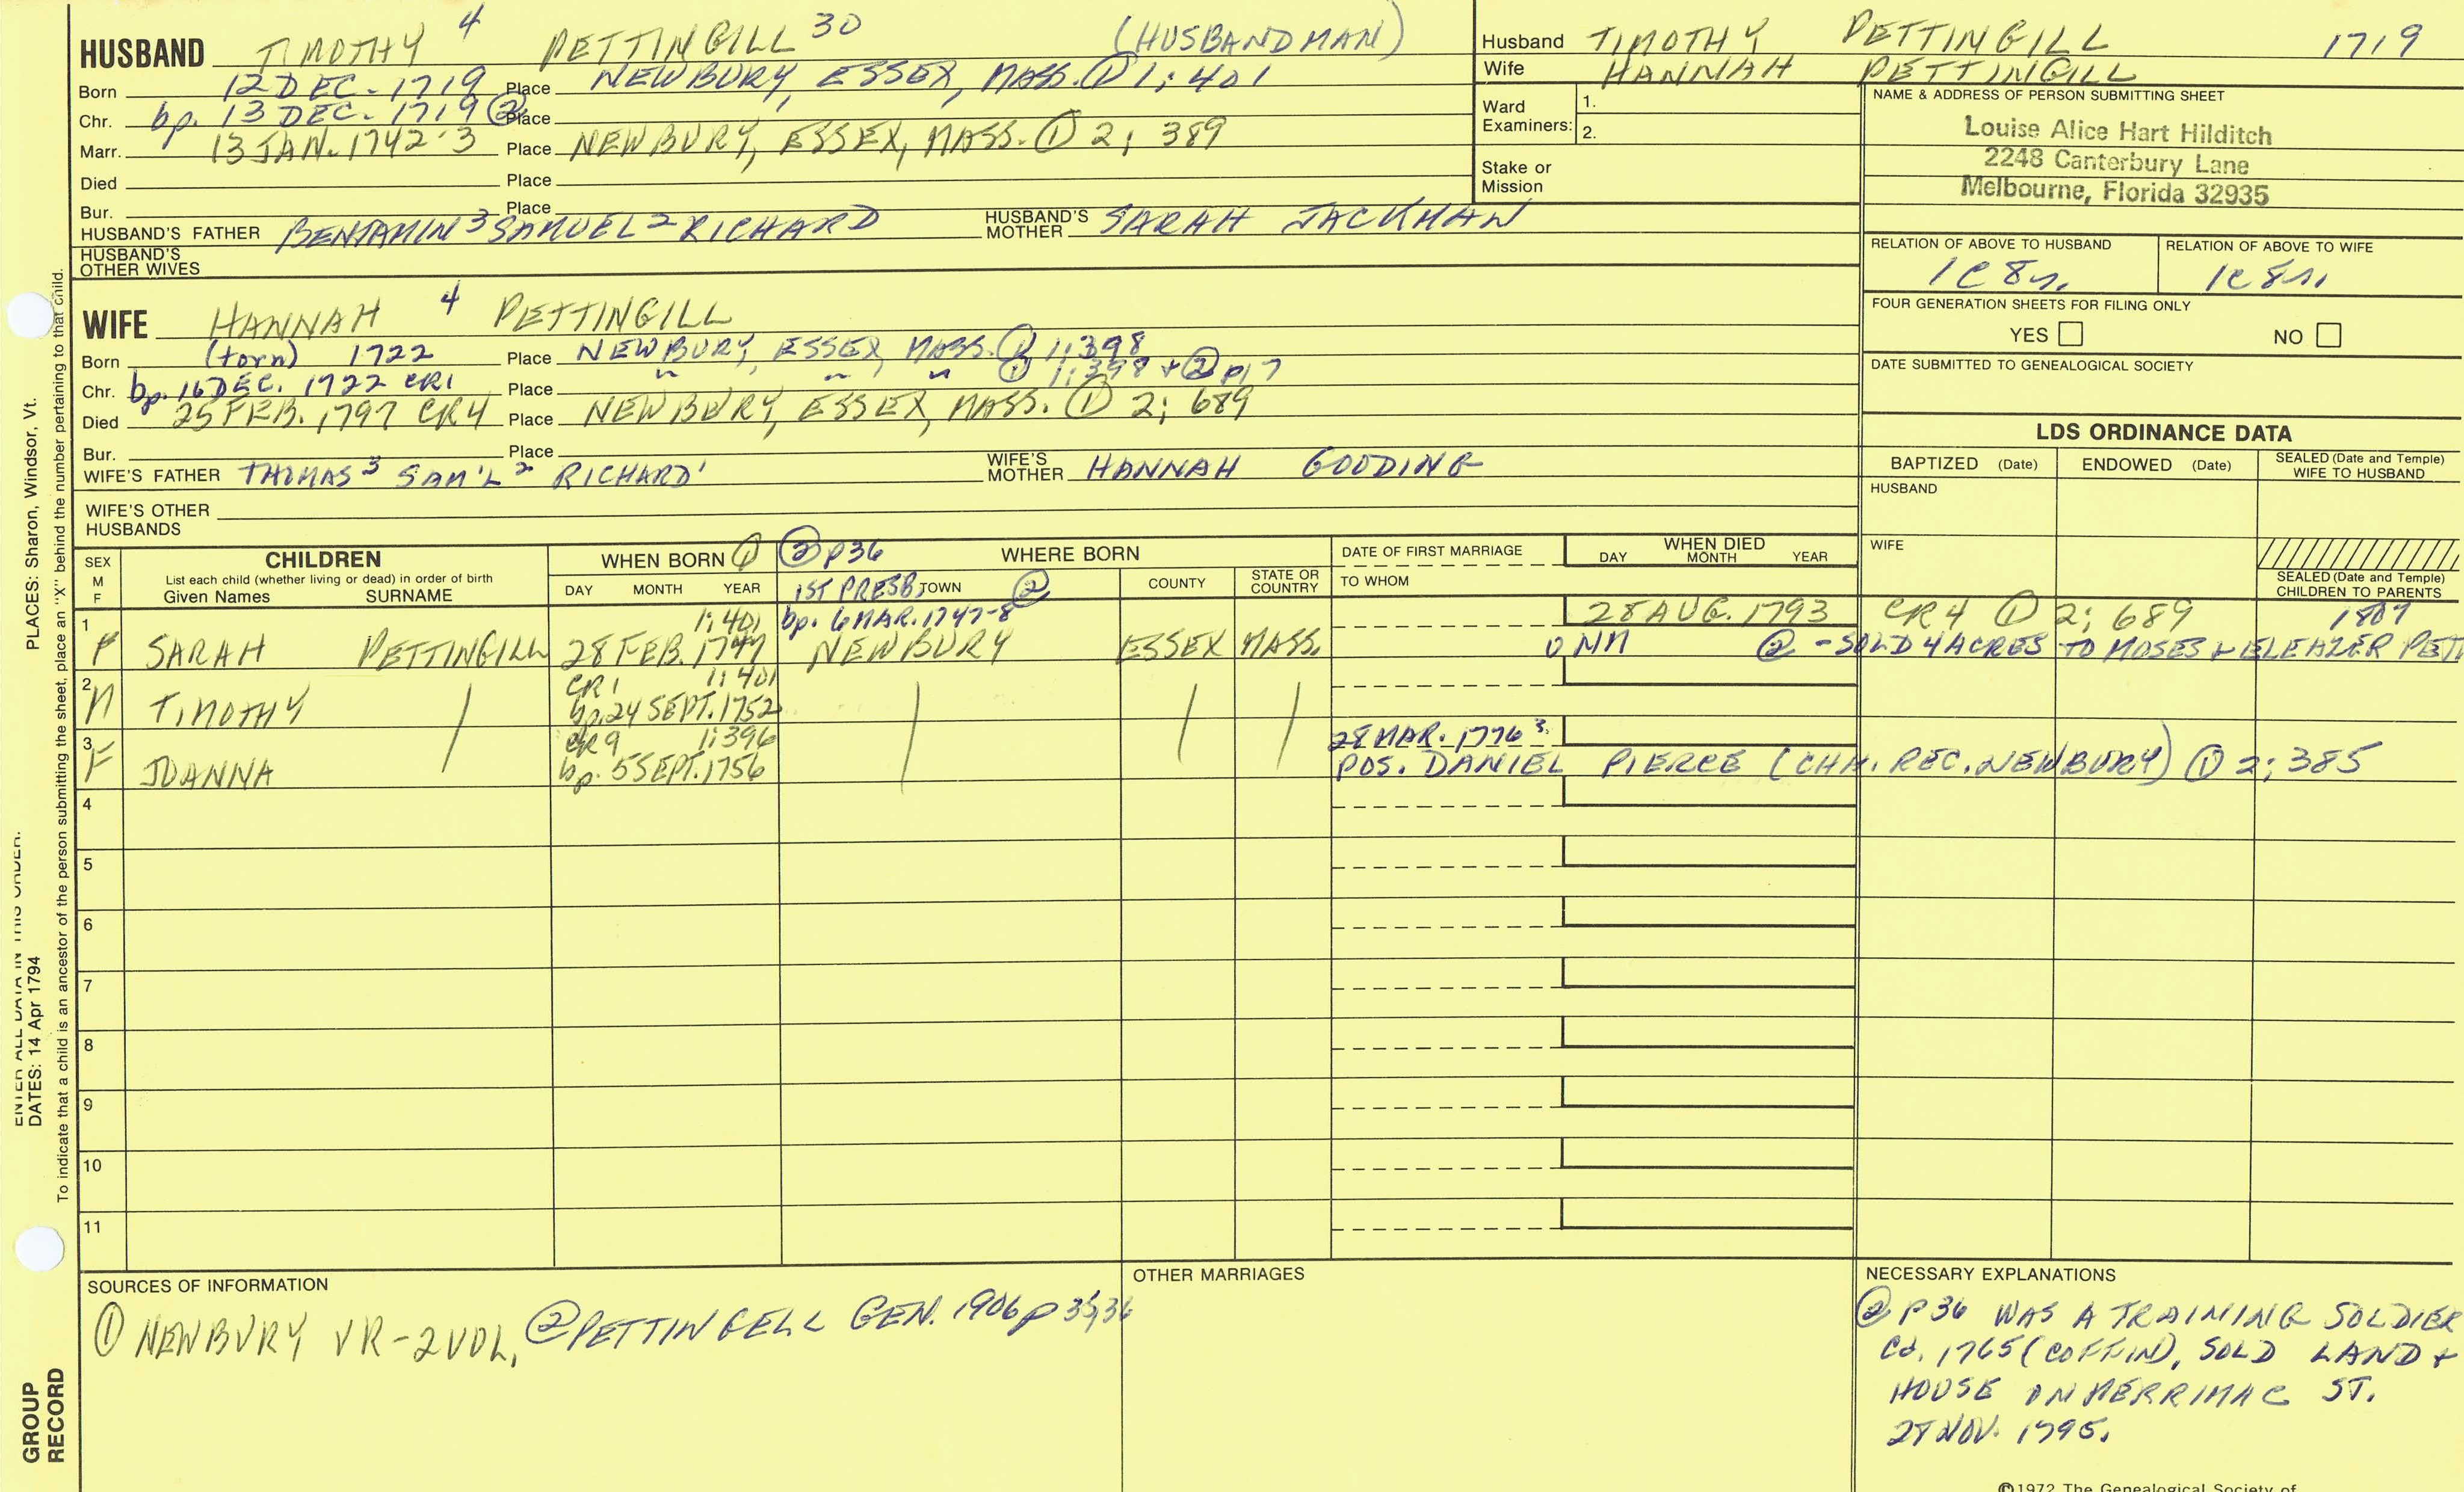 HUSBAND TIMOTHY 4 PETTINGILL 30 (HUSBANDMAN)
Born 12 DEC. 1719 Place NEWBURY, ESSEX, MASS. ① 1; 401
Chr. bp. 13 DEC. 1719 ② Place
Marr. 13 JAN. 1742-3 Place NEWBURY, ESSEX, MASS. ① 2; 389
Died Place
Bur. Place
HUSBAND'S FATHER BENJAMIN 3 SAMUEL 2 RICHARD HUSBAND'S MOTHER SARAH JACKMAN
HUSBAND'S OTHER WIVES
WIFE HANNAH 4 PETTINGILL
Born (torn) 1722 Place NEWBURY, ESSEX, MASS. ① 1; 398
Chr. bp. 16 DEC. 1722 CR1 Place " " " ① 1; 398 + ② p17
Died 25 FEB. 1797 CR4 Place NEWBURY, ESSEX, MASS. ① 2; 689
Bur. Place
WIFE'S FATHER THOMAS 3 SAM'L 2 RICHARD' WIFE'S MOTHER HANNAH GOODING
WIFE'S OTHER HUSBANDS
Husband TIMOTHY PETTINGILL 1719
Wife HANNAH PETTINGILL
Ward Examiners: 1.
2.
Stake or Mission
NAME & ADDRESS OF PERSON SUBMITTING SHEET
Louise Alice Hart Hilditch
2248 Canterbury Lane
Melbourne, Florida 32935
RELATION OF ABOVE TO HUSBAND RELATION OF ABOVE TO WIFE
1C 8r. 1C 8r.
FOUR GENERATION SHEETS FOR FILING ONLY
YES NO
DATE SUBMITTED TO GENEALOGICAL SOCIETY
LDS ORDINANCE DATA
BAPTIZED (Date) ENDOWED (Date) SEALED (Date and Temple) WIFE TO HUSBAND
HUSBAND
WIFE
SEALED (Date and Temple) CHILDREN TO PARENTS
SEX M F
CHILDREN
List each child (whether living or dead) in order of birth
Given Names SURNAME
WHEN BORN ① ② p36 WHERE BORN
DAY MONTH YEAR 1ST PRESB. TOWN ② COUNTY STATE OR COUNTRY
DATE OF FIRST MARRIAGE
TO WHOM
WHEN DIED
DAY MONTH YEAR
1 1; 401 bp. 6 MAR. 1747-8 28 AUG. 1793 CR4 ① 2; 689 1807
F SARAH PETTINGILL 28 FEB. 1747 NEWBURY ESSEX MASS. UNM ② - SOLD 4 ACRES TO MOSES + ELEAZER PETT
2 CR1 1; 401
M TIMOTHY bp. 24 SEPT. 1752
3 CR9 1; 396 28 MAR. 1776 3.
F JOANNA bp. 5 SEPT. 1756 POS. DANIEL PIERCE (CHH. REC. NEWBURY) ① 2; 385
4
5
6
7
8
9
10
11
SOURCES OF INFORMATION
① NEWBURY VR-2VOL, ② PETTINGELL GEN. 1906 p 35,36
OTHER MARRIAGES
NECESSARY EXPLANATIONS
② P36 WAS A TRAINING SOLDIER
Cd. 1765 (COFFIN), SOLD LAND +
HOUSE ON MERRIMAC ST.
27 NOV. 1795.
©1972 The Genealogical Society of
PLACES: Sharon, Windsor, Vt.
ENTER ALL DATA IN THIS ORDER:
DATES: 14 Apr 1794
To indicate that a child is an ancestor of the person submitting the sheet, place an "X" behind the number pertaining to that child.
GROUP
RECORD